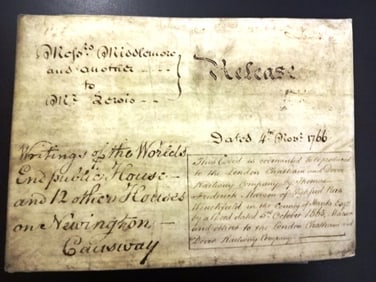 Mess.rs Middlemore
and another
to
Mr. Lewis
Release
Dated 4th Novr. 1766
Writings of the World's
End public House
and 12 other Houses
on Newington
Causway
This Deed is covenanted to be produced
to the London Chatham and Dover
Railway Company by Thomas
Frederick
in the County of Hants Esq
by a Deed dated 5th October 1863,
and others to the London Chatham and
Dover Railway Company